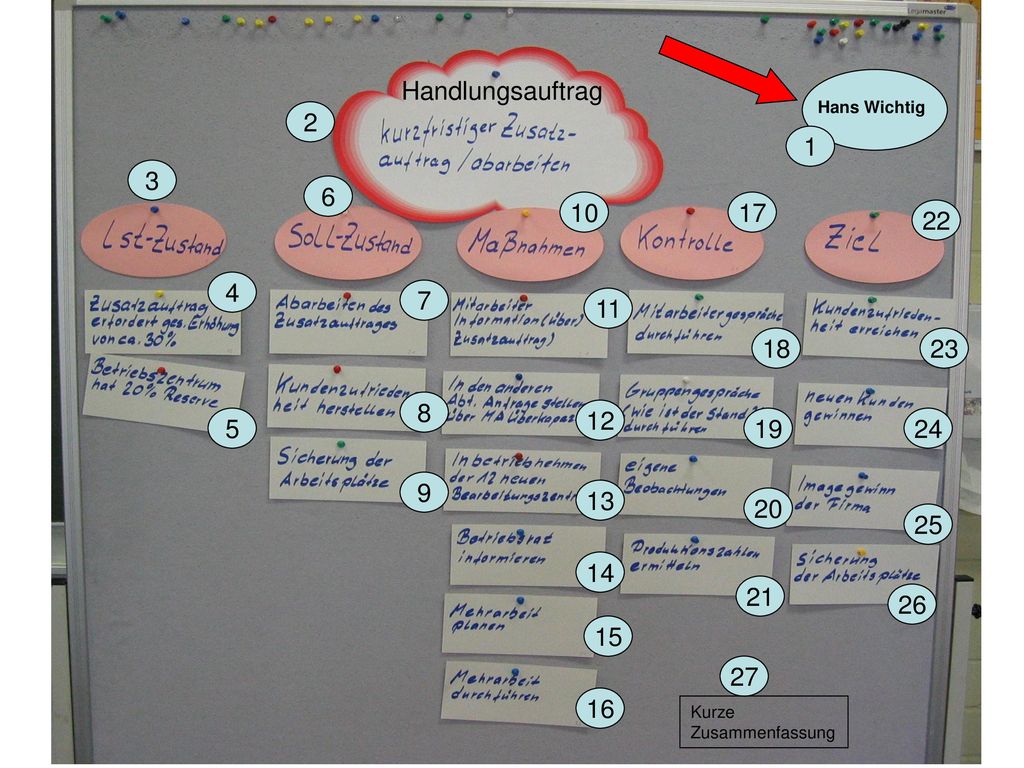 Legamaster
Handlungsauftrag
kurzfristiger Zusatz-
auftrag / abarbeiten
Hans Wichtig
1
2
3
Ist-Zustand
4
Zusatzauftrag
erfordert ges. Erhöhung
von ca. 30%
5
Betriebszentrum
hat 20% Reserve
6
Soll-Zustand
7
Abarbeiten des
Zusatzauftrages
8
Kundenzufrieden
heit herstellen
9
Sicherung der
Arbeitsplätze
10
Maßnahmen
11
Mitarbeiter
Information (über)
Zusatzauftrag)
12
In den anderen
Abt. Anfrage stellen
über MA Überkapaz
13
Inbetriebnehmen
der 12 neuen
Bearbeitungszentr
14
Betriebsrat
informieren
15
Mehrarbeit
planen
16
Mehrarbeit
durchführen
17
Kontrolle
18
Mitarbeitergespräche
durchführen
19
Gruppengespräche
(wie ist der Stand?
durchführen
20
eigene
Beobachtungen
21
Produktionszahlen
ermitteln
22
Ziel
23
Kundenzufrieden-
heit erreichen
24
neuen Kunden
gewinnen
25
Imagegewinn
der Firma
26
Sicherung
der Arbeitsplätze
27
Kurze
Zusammenfassung